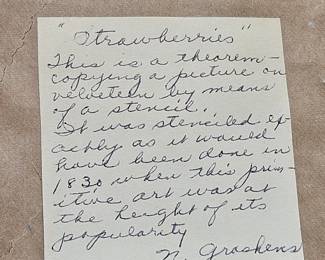 "Strawberries"
This is a theorem-
copying a picture on
velveteen by means
of a stencil.
It was stenciled ex
actly as it would
have been done in
1830 when this prim-
itive art was at
the height of its
popularity
N. Groshens